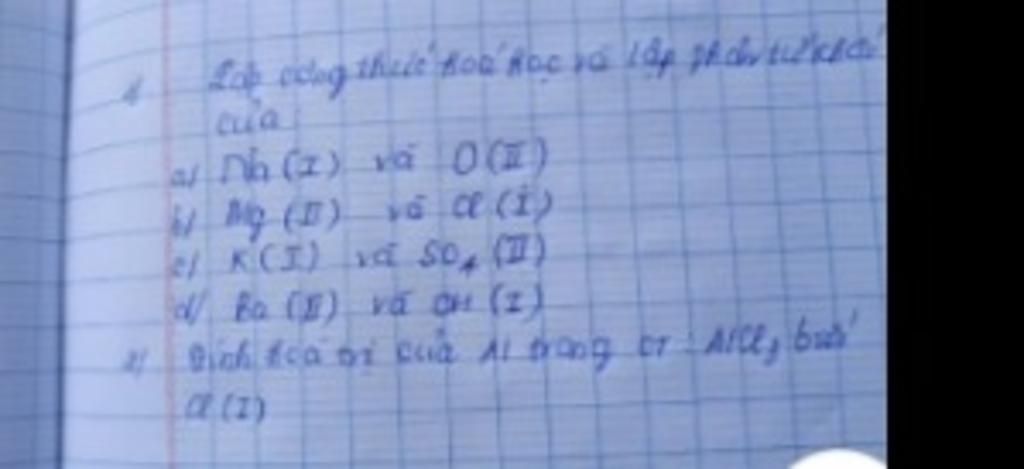 1/ Lập công thức hoá học và lập phân tử khối
của
a/ Na (I) và O (II)
b/ Mg (II) và Cl (I)
c/ K (I) và SO₄ (II)
d/ Ba (II) và OH (I)
2/ Tính hoá trị của Al trong CT : AlCl₃ biết
Cl (I)